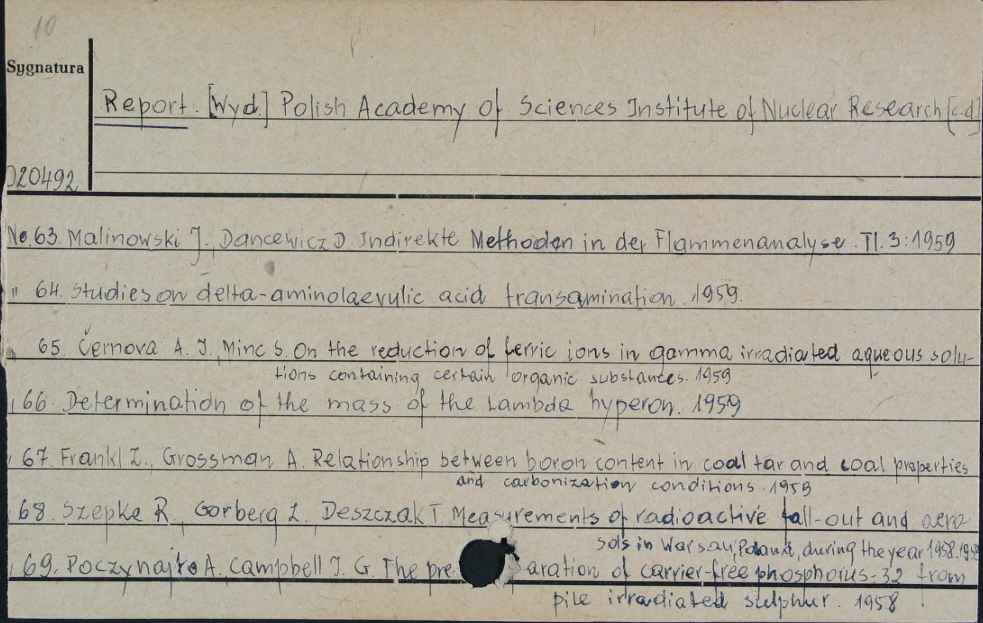 10
Sygnatura
Report. [Wyd.] Polish Academy of Sciences Institute of Nuclear Research [c.d]
020492
No 63 Malinowski J., Dancewicz D Indirekte Methoden in der Flammenanalyse. Tl. 3: 1959
" 64. Studies on delta-aminolaevulic acid transamination. 1959.
65. Černova A. I., Minc S. On the reduction of ferric ions in gamma irradiated aqueous solu-
tions containing certain organic substances. 1959
66. Determination of the mass of the Lambda hyperon. 1959
67. Frankl Z., Grossman A. Relationship between boron content in coal tar and coal properties
and carbonization conditions. 1959
68. Szepke R., Gorberg L. Deszczak T Measurements of radioactive fall-out and aero
sols in Warsaw, Poland, during the year 1958.
69. Poczynajło A., Campbell I. G. The pre aration of carrier-free phosphorus-32 from
pile irradiated sulphur. 1958